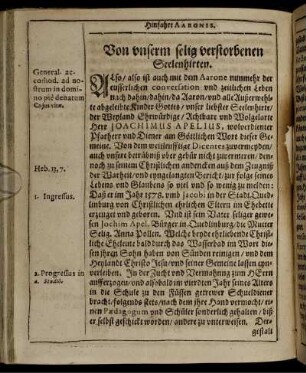 Hinfahrt AARONIS.
Von vnserm selig verstorbenen
Seelenhirten.
General. ac-
comod. ad no-
strum in domi-
no piè denatum
Cujus vitæ.
Also/ also ist auch mit dem Aarone nunmehr der
eusserlichen conversation vnd zeitlichen Leben
nach dahin/ dahin/ da Aaron/ vnd alle Außerwehl-
te abgeleibte Kinder Gottes/ vnser liebster Seelenhirte/
der Weyland Ehrwürdige/ Achtbare vnd Wolgelarte
Herr JOACHIMUS APELIUS, wolverdienter
Pfarherr vnd Diener am Göttlichen Wort dieser Ge-
meine. Von dem weitleufftige Dicentes zuvermeyden/
auch vnsere betrübnis vber gebür nicht zuvermehren/ den-
Heb. 13, 7.
noch zu seinem Christlichen andencken auß dem Zeugniß
der Warheit/ vnd eyngelangten Bericht/ zur folge seines
Lebens vnd Glaubens so viel vnd so wenig zu melden:
1. Ingressus.
Daß er im Jahr 1578. vmb Jacobi in der Stadt Qued-
linburg von Christlichen ehrlichen Eltern im Ehebette
erzeuget vnd geboren. Vnd ist sein Vater seliger gewe-
sen Jochim Apel, Bürger in Quedlinburg/ die Mutter
Selig. Anna Pollen. Welche beyde eheliebende Christ-
liche Eheleute bald durch das Wasserbad im Wort die-
sen ihren Sohn haben von Sünden reinigen/ vnd dem
Heylandt Christo Jesu/ vnd seiner Gemeine lassen eyn-
verleiben.
2. Progressus in
a. Studiis.
In der Zucht vnd Vermahnung zum HErrn
aufferzogen/ vnd alßbald im vierdten Jahr seines Alters
in die Schule zu den Füssen getrewer Schuldiener
bracht/ folgends stets/ nach dem ihre Hand vermocht/ ei-
nen Pædagogum vnd Schüler sonderlich gehalten/ biß
er selbst geschickt worden/ andere zu unterweisen. Der-
gestalt